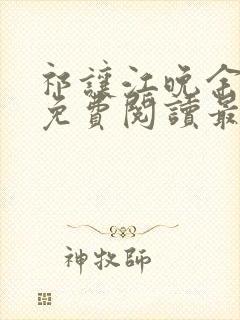 祁讓江晚全
免費閱讀最
神牧師